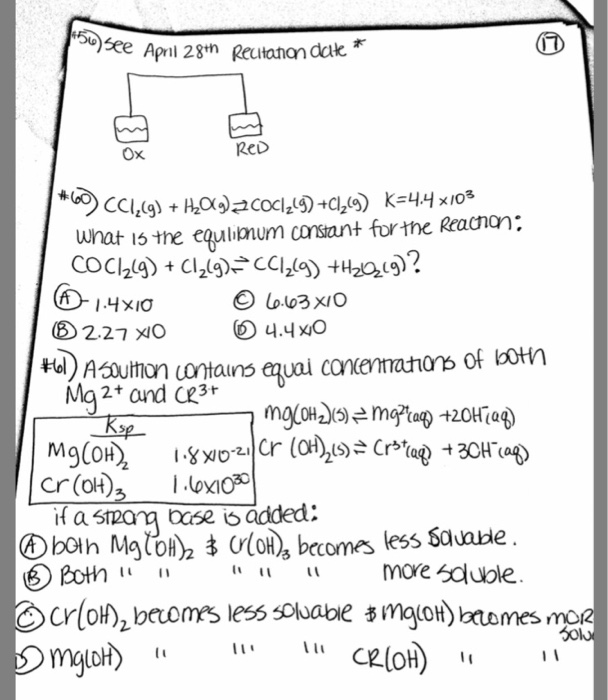 #56) See April 28th Recitation date *
17
Ox
RED
#60) CCl₂(g) + H₂O(g) ⇌ COCl₂(g) + Cl₂(g) K=4.4 x10³
What is the equilibrium constant for the Reaction:
COCl₂(g) + Cl₂(g) ⇌ CCl₂(g) + H₂O₂(g)?
A - 1.4x10
C 6.63 x10
B 2.27 x10
D 4.4x10
#61) A soultion contains equal concentrations of both
Mg2+ and CR3+
Ksp
Mg(OH)₂ 1.8 x10-21
Cr(OH)₃ 1.6x1030
mg(OH₂)(s) ⇌ mg2+(aq) + 2OH-(aq)
Cr (OH)₂(s) ⇌ Cr3+(aq) + 3OH-(aq)
if a strong base is added:
A both Mg(OH)₂ & Cr(OH)₃ becomes less soluable.
B Both " " " " " more soluble.
C Cr(OH)₂ becomes less soluable & Mg(OH) becomes mor
solu
D mg(OH) " " ' " ' " CR(OH) " "